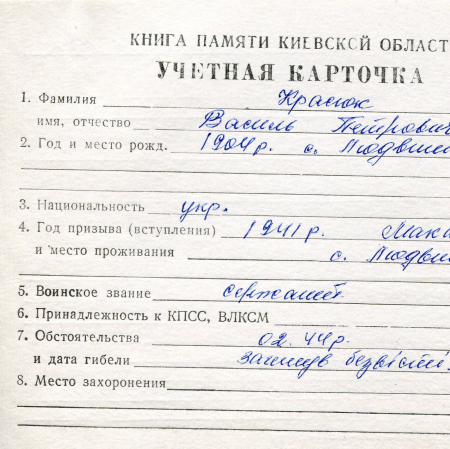 КНИГА ПАМЯТИ КИЕВСКОЙ ОБЛАСТ
УЧЕТНАЯ КАРТОЧКА
1. Фамилия Красюк
имя, отчество Василь Петрович
2. Год и место рожд. 1904р. с.
3. Национальность укр.
4. Год призыва (вступления) 1941р. Мак
и место проживания с.
5. Воинское звание сержант
6. Принадлежность к КПСС, ВЛКСМ
7. Обстоятельства 02.44р.
и дата гибели загинув безвісти.
8. Место захоронения